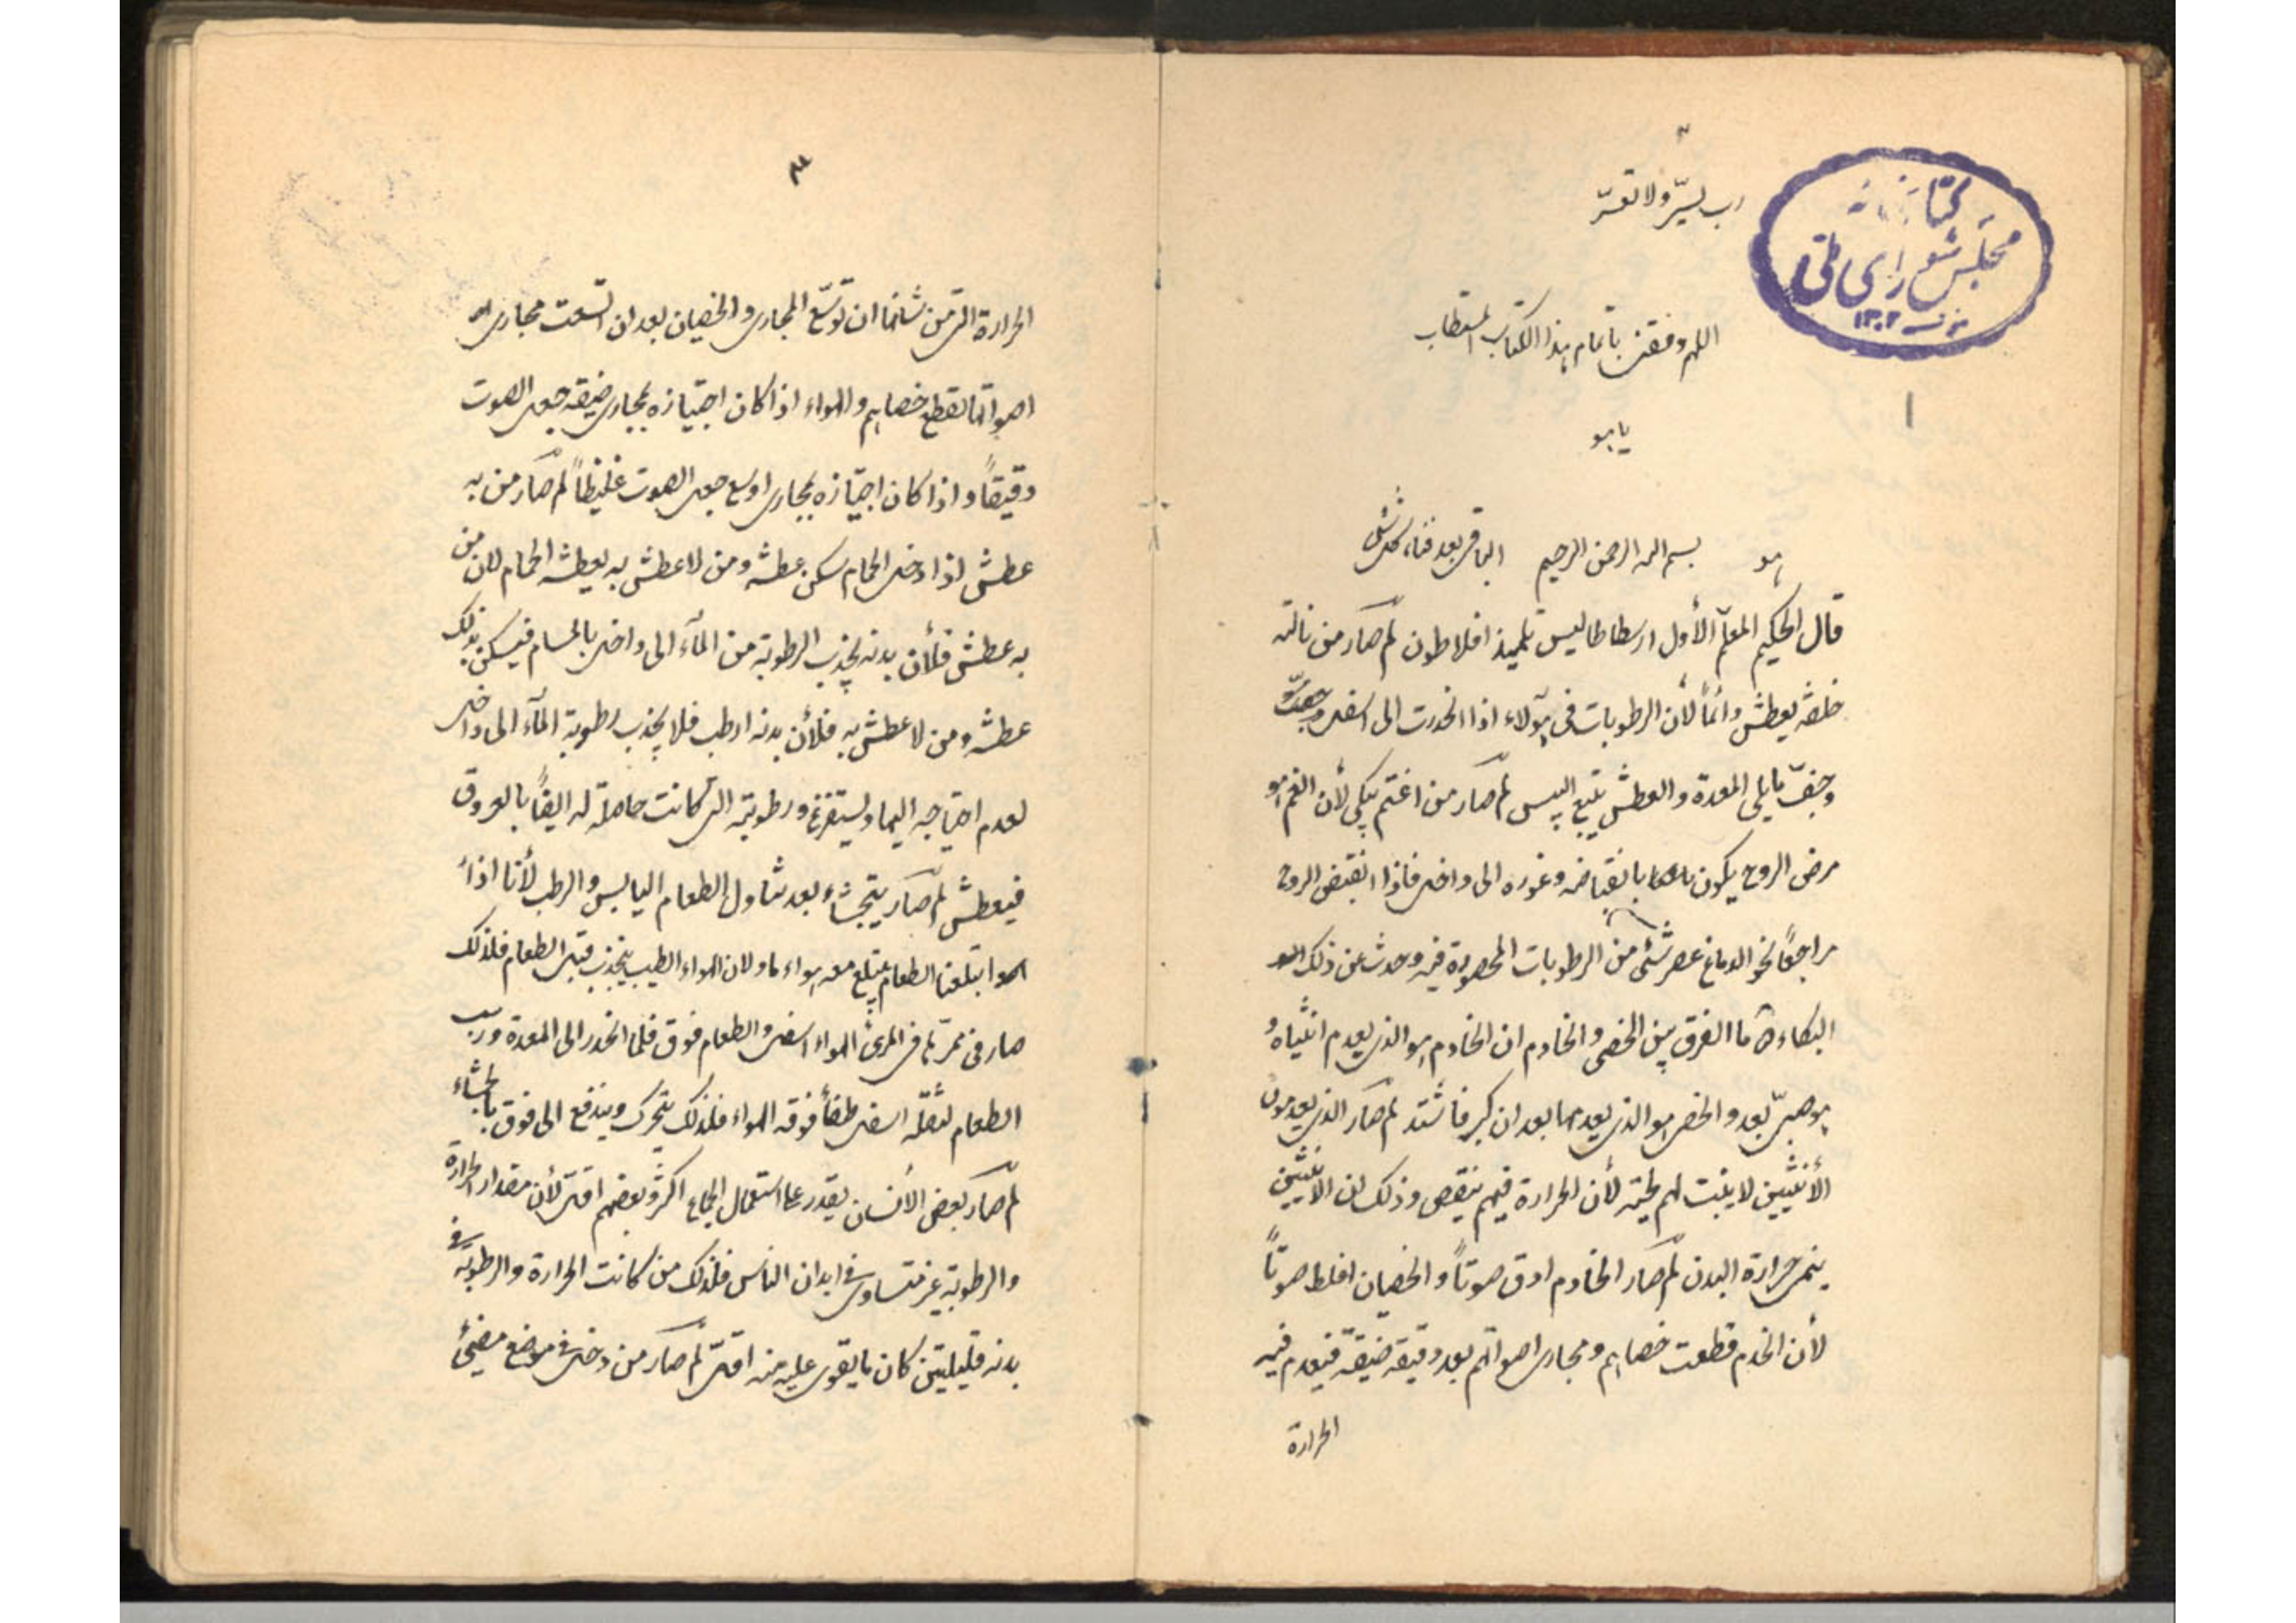 ۲
رب يسّر ولا تعسّر
كتابخانه
مجلس شورای ملی
۱۳۰۲
اللهم وفقنى باتمام هذا الكتاب المستطاب
۱
يا هو
هو بسم الله الرحمن الرحيم الباقى بعد فناء كل شئى
قال الحكيم المعلّم الأول ارسطاطاليس تلميذ افلاطون لم صار من نالته
خلفه يعطش دائماً لأن الرطوبات فى هؤلاء اذا انحدرت الى اسفل
وجفّ ما يلى المعدة والعطش يتبع اليبس لم صار من اغتم يبكى لأن الغم هو
مرض الروح يكون بانقباضه وغوره الى داخل فاذا انقبض الروح
مراجعاً نحو الدماغ عصر شئى من الرطوبات المحصورة فيه وحدث عن ذلك
البكاء ما الفرق بين الخصى والخادم ان الخادم هو الذى يعدم انثياه و
هو صبىّ بعد والخصى هو الذى يعدمها بعد ان كبر فاشتد لم صار الذى يعدمون
الأنثيين لا ينبت لهم لحية لأن الحرارة فيهم ينقص وذلك لان الانثيين
ينمى حرارة البدن لم صار الخادم ادق صوتاً والخصيان اغلظ صوتاً
لأن الخدم قطعت خصاهم ومجارى اصواتهم بعد دقيقه ضيقة فيعدم فيه
الحرارة
۳
الحرارة التى من شانها ان توسّع المجارى والخصيان بعد ان اتسعت مجارى
اصواتها تقطع خصاهم والهواء اذا كان اجتيازه بمجارى ضيقه جعل الصوت
دقيقاً واذا كان اجتيازه بمجارى اوسع جعل الصوت غليظاً لم صار من به
عطش اذا دخل الحمام سكن عطشه ومن لا عطش به يعطشه الحمام لان من
به عطش فلأن بدنه يجذب الرطوبة من المآء الى داخل بالمسام فيسكن بذلك
عطشه ومن لا عطش به فلأن بدنه ارطب فلا يجذب رطوبة المآء الى داخل
لعدم احتياجه اليها ويستفرغ ورطوبته التى كانت حاصلة له ايضاً بالعروق
فيعطش لم صار يتجشاء بعد تناول الطعام اليابس والرطب لأنا اذا
ابتلعنا الطعام يبتلع معه هواء ما ولان الهواء الطيب ينجذب قبل الطعام فلذلك
صار فى ممرّ ما فى المرئ الهواء اسفل والطعام فوق فلما انحدر الى المعدة ورسب
الطعام لثقله اسفل طفأ فوقه الهواء فلذلك يتحرك ويندفع الى فوق بالجشاء
لم صار بعض الأنسان يقدر على استعمال الجماع اكثر وبعضهم اقل لأن مقدار الحرارة
والرطوبة غير متساوى فى ابدان الناس فلذلك من كانت الحرارة والرطوبة فى
بدنه قليلتين كان ما يقوى عليه منه اقل لم صار من دخل فى موضع مضئ